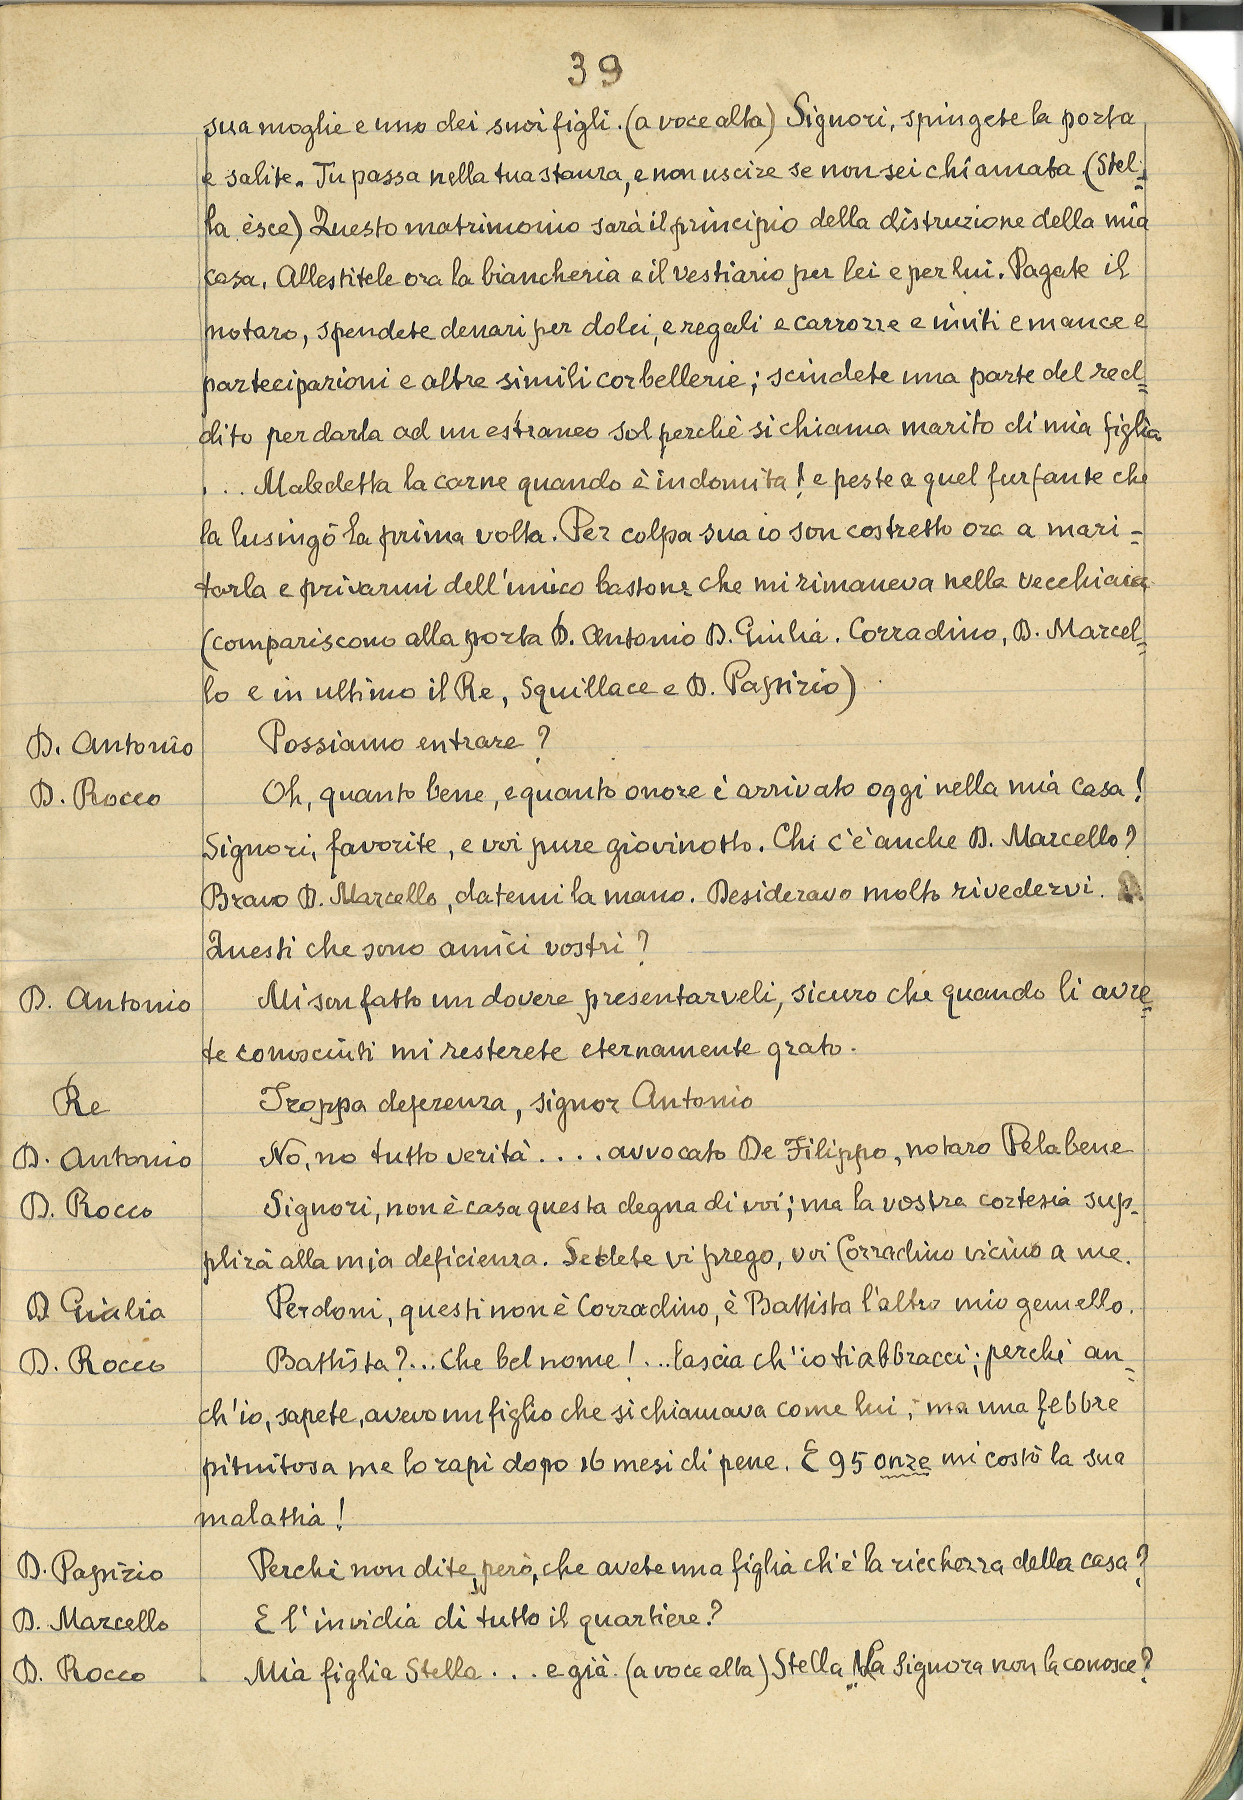 39
sua moglie e uno dei suoi figli. (a voce alta) Signori, spingete la porta
e salite. Tu passa nella tua stanza, e non uscire se non sei chiamata (Stel=
la èsce) Questo matrimonio sarà il principio della distruzione della mia
casa. Allestitele ora la biancheria e il vestiario per lei e per lui. Pagate il
notaro, spendete denari per dolci, e regali e carrozze e inviti e mance e
partecipazioni e altre simili corbellerie; scindete una parte del red=
dito per darla ad un estraneo sol perchè si chiama marito di mia figlia
... Maledetta la carne quando è indomita! e peste a quel furfante che
la lusingò la prima volta. Per colpa sua io son costretto ora a mari=
tarla e privarmi dell'unico bastone che mi rimaneva nella vecchiaia
(compariscono alla porta D. Antonio D. Giulia. Corradino, D. Marcel=
lo e in ultimo il Re, Squillace e D. Papirio)
D. Antonio Possiamo entrare?
D. Rocco Oh, quanto bene, e quanto onore è arrivato oggi nella mia casa!
Signori, favorite, e voi pure giovinotto. Chi c'è anche D. Marcello?
Bravo D. Marcello, datemi la mano. Desideravo molto rivedervi.
Questi che sono amici vostri?
D. Antonio Mi son fatto un dovere presentarveli, sicuro che quando li avre=
te conosciuti mi resterete eternamente grato.
Re Troppa deferenza, signor Antonio
D. Antonio No, no tutto verità .... avvocato De Filippo, notaro Pelabene
D. Rocco Signori, non è casa questa degna di voi; ma la vostra cortesia sup=
plirà alla mia deficienza. Sedete vi prego, voi Corradino vicino a me.
D Giulia Perdoni, questi non è Corradino, è Battista l'altro mio gemello.
D. Rocco Battista?... Che bel nome! ... lascia ch'io ti abbracci; perchè an=
ch'io, sapete, avevo un figlio che si chiamava come lui, ma una febbre
pituitosa me lo rapì dopo 16 mesi di pene. E 95 onze mi costò la sua
malattia!
D. Papirio Perchè non dite, però, che avete una figlia ch'è la ricchezza della casa?
D. Marcello E l'invidia di tutto il quartiere?
D. Rocco Mia figlia Stella ... e già. (a voce alta) Stella, La Signora non la conosce?